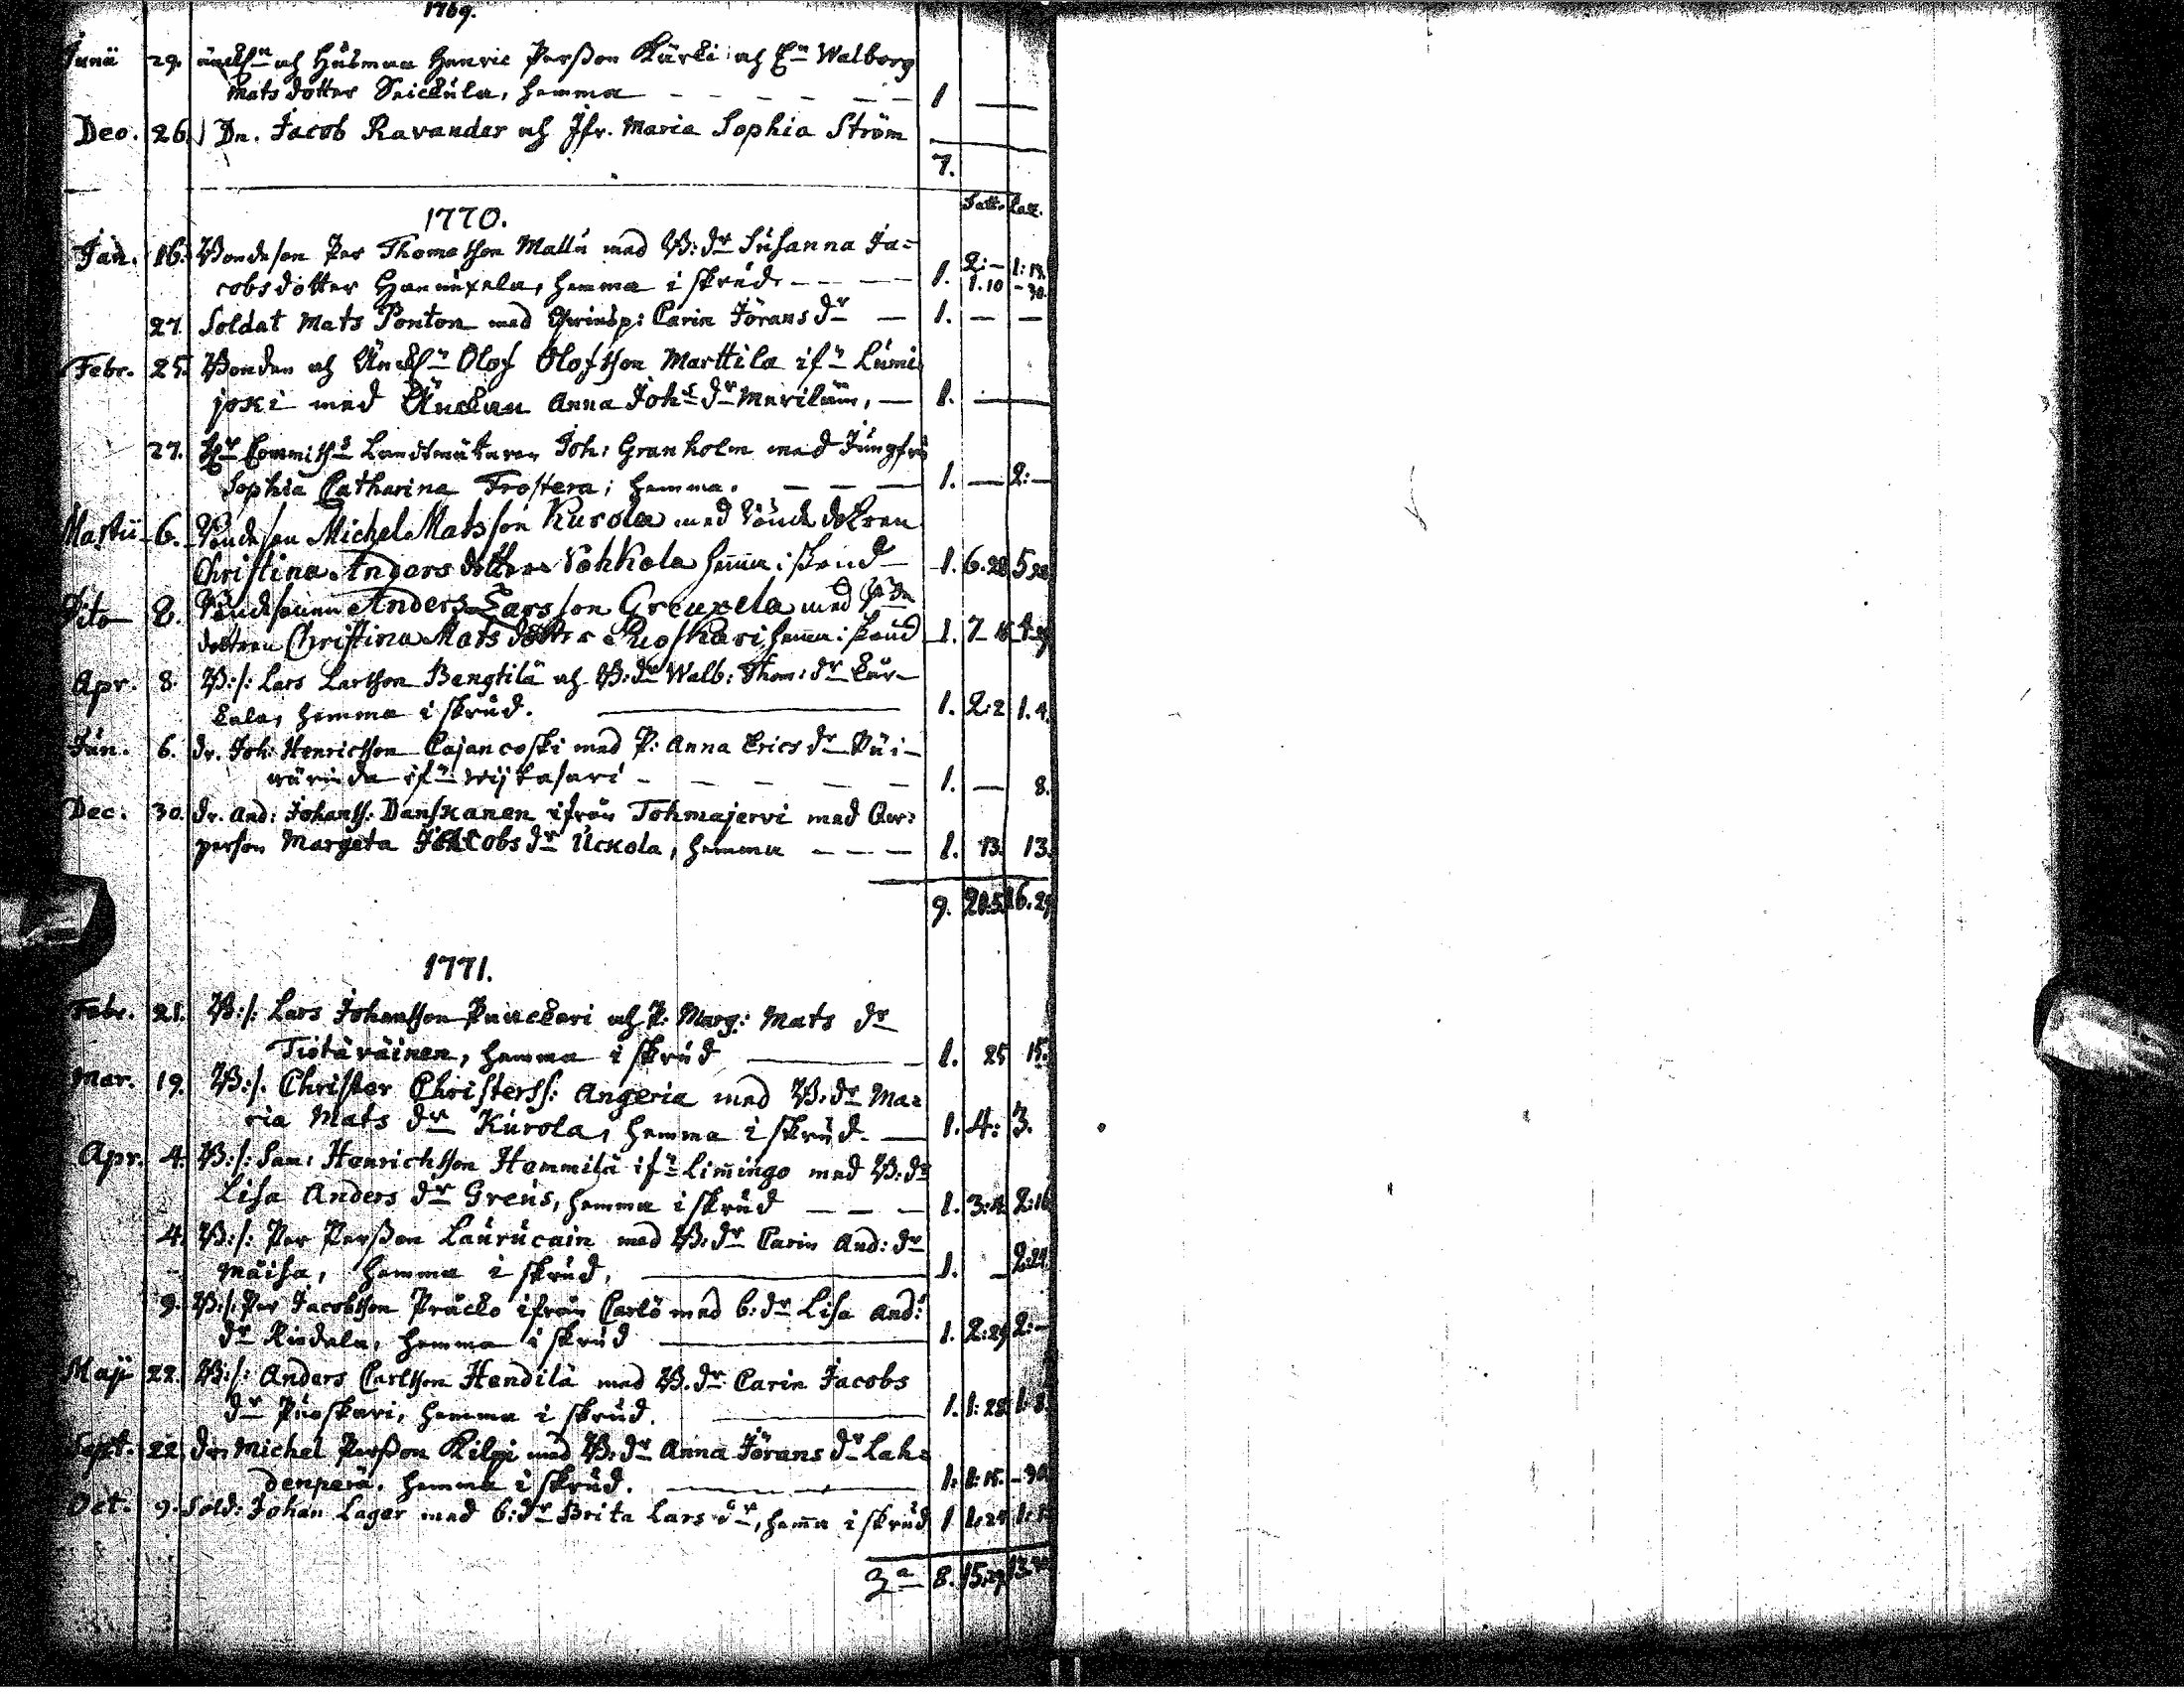 1769.
Junii 29. änckl:n och Husman Henric Persson Kärki och E:n Walborg
Matsdotter Seickula, hemma - - - - - - 1 —
Dec. 26. Dn. Jacob Ravander och Jfr. Maria Sophia Ström
7.
1770.
Jan. 16. Bondeson Per Thomasson Mallu med B:dr Susanna Ja=
cobsdotter Hannuxela, hemma i skrud. - - - 1. 2:— 1.10
27. Soldat Mats Ponton med Qwinsp: Carin Jörans dr — 1. — —
Febr. 25. Bonden och Änckl:n Olof Olofsson Marttila ifn Lumi
joki med Änckan Anna Johs dr Mariläin, — 1. —
27. Hr Commiss:s Landtmätaren Joh: Granholm med Jungfru
Sophia Catharina Frostera; hemma. — — — 1. — 2:—
Martii 6. Bondeson Michel Matsson Kurola med Bonde dottren
Christina Andersdotter Våhkola hemma i skrud — 1. 6.28 5.28
Dito 8. Bondesonen Anders Larsson Greuxela med
dottren Christina Matsdotter Ruoskari hemma i skrud 1. 7
Apr. 8. B:s: Lars Larsson Bengtilä och B:dr Walb: Thom: dr Kär-
kala, hemma i skrud. — 1. 2:2 1.4.
Jun. 6. dr. Joh: Henricsson Cajancoski med P: Anna Erics dr Päi-
wärinda ifn Wijkasari - - - - - 1. — 8.
Dec. 30. dr. And: Johanss: Danskanen ifrån Tohmajervi med Qw:
person Margeta Jacobs dr Uckola, hemma - - - 1. 13. 13.
9. 20.5. 16.29
1771.
Febr. 21. B:s: Lars Johansson Punckari och P: Marg: Mats dr
Tiötäräinen, hemma i skrud — 1. 25 15.
Mar. 19. B:s: Christer Christerss: Angeria med B:dr Ma=
ria Mats dr Kurola, hemma i skrud. — 1. 4: 3.
Apr. 4. B:s: Sam: Henrichsson Hemmilä ifn Limingo med B:dr
Lisa Anders dr Greus, hemma i skrud — — — 1. 3:4 2:16
4. B:s: Per Persson Laurucain med B:dr Carin And: dr
Mäisa, hemma i skrud, — 1. — 2:24
9. B:s: Per Jacobsson Präcko ifrån Carlö med b:dr Lisa And:
dr Rindala, hemma i skrud — 1. 2:29 2:—
Maji 22. B:s: Anders Carlsson Hendilä med B.dr Carin Jacobs
dr Puoskari, hemma i skrud. — 1. 1:28 1:8.
Sept. 22. dr. Michel Persson Kilpi med B:dr Anna Jörans dr Lah=
denperä, hemma i skrud. — 1. 1:15.
Oct. 9. Sold: Johan Lager med b:dr Brita Lars dr, hema i skrud 1
8. 15.